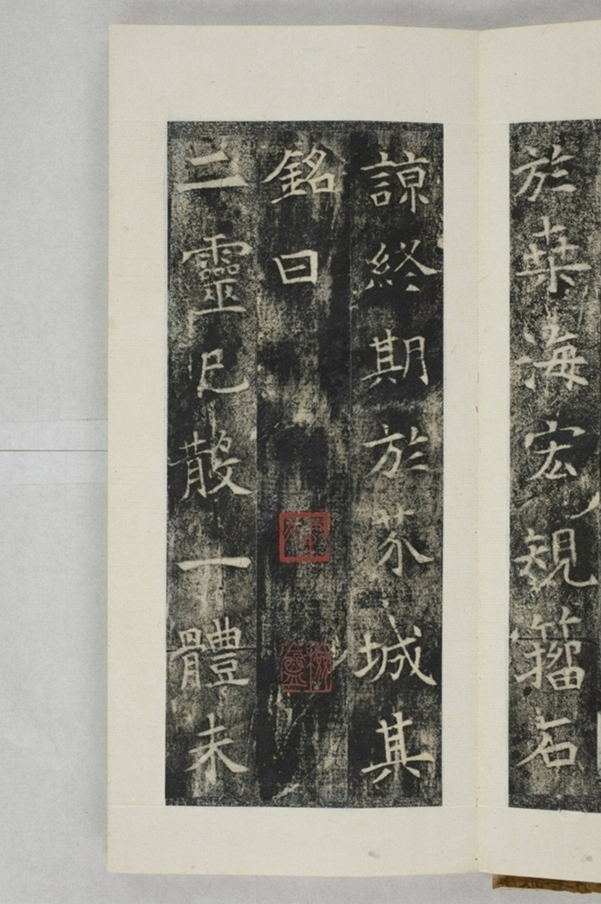 於桒海宏規籀石
諒終期於芥城其
銘曰
二靈已散一體未